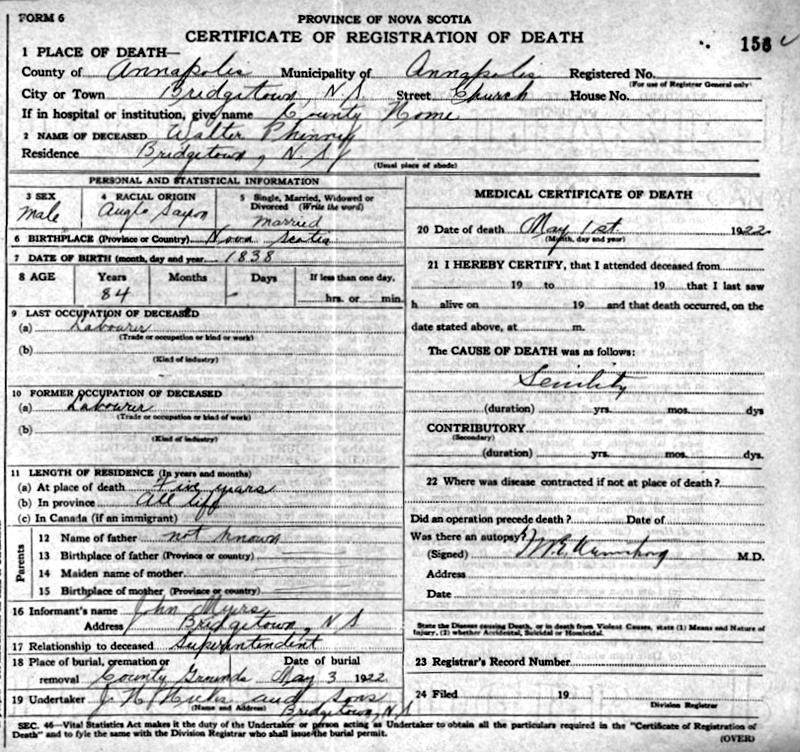 FORM 6
PROVINCE OF NOVA SCOTIA
CERTIFICATE OF REGISTRATION OF DEATH
156
1 PLACE OF DEATH—
County of Annapolis Municipality of Annapolis Registered No.
(For use of Registrar General only)
City or Town Bridgetown, N.S. Street Church House No.
If in hospital or institution, give name County Home
2 NAME OF DECEASED Walter Phinney
Residence Bridgetown, N.S.
(Usual place of abode)
PERSONAL AND STATISTICAL INFORMATION
3 SEX
male
4 RACIAL ORIGIN
Anglo Saxon
5 Single, Married, Widowed or Divorced (Write the word)
Married
6 BIRTHPLACE (Province or Country) Nova Scotia
7 DATE OF BIRTH (month, day and year) 1838
8 AGE Years Months Days If less than one day,
84 - hrs. or min.
9 LAST OCCUPATION OF DECEASED
(a) Labourer
(Trade or occupation or kind or work)
(b)
(Kind of industry)
10 FORMER OCCUPATION OF DECEASED
(a) Labourer
(Trade or occupation or kind of work)
(b)
(Kind of industry)
11 LENGTH OF RESIDENCE (In years and months)
(a) At place of death Five years
(b) In province All life
(c) In Canada (if an immigrant)
Parents
12 Name of father not known
13 Birthplace of father (Province or country)
14 Maiden name of mother
15 Birthplace of mother (Province or country)
16 Informant's name John Myers
Address Bridgetown, N S
17 Relationship to deceased Superintendent
18 Place of burial, cremation or removal County Grounds
Date of burial May 3 1922
19 Undertaker J H Hicks and Sons
(Name and Address) Bridgetown, N.S
MEDICAL CERTIFICATE OF DEATH
20 Date of death May 1st 1922
(Month, day and year)
21 I HEREBY CERTIFY, that I attended deceased from
19 to 19 that I last saw
h alive on 19 and that death occurred, on the
date stated above, at m.
The CAUSE OF DEATH was as follows:
Senility
(duration) yrs. mos. dys
CONTRIBUTORY
(Secondary)
(duration) yrs. mos. dys
22 Where was disease contracted if not at place of death?
Did an operation precede death? Date of
Was there an autopsy?
(Signed) M.D.
Address
Date
State the Disease causing Death, or in death from Violent Causes, state (1) Means and Nature of
Injury, (2) whether Accidental, Suicidal or Homicidal.
23 Registrar's Record Number
24 Filed 19
Division Registrar
SEC. 46—Vital Statistics Act makes it the duty of the Undertaker or person acting as Undertaker to obtain all the particulars required in the "Certificate of Registration of
Death" and to fyle the same with the Division Registrar who shall issue the burial permit.
(OVER)